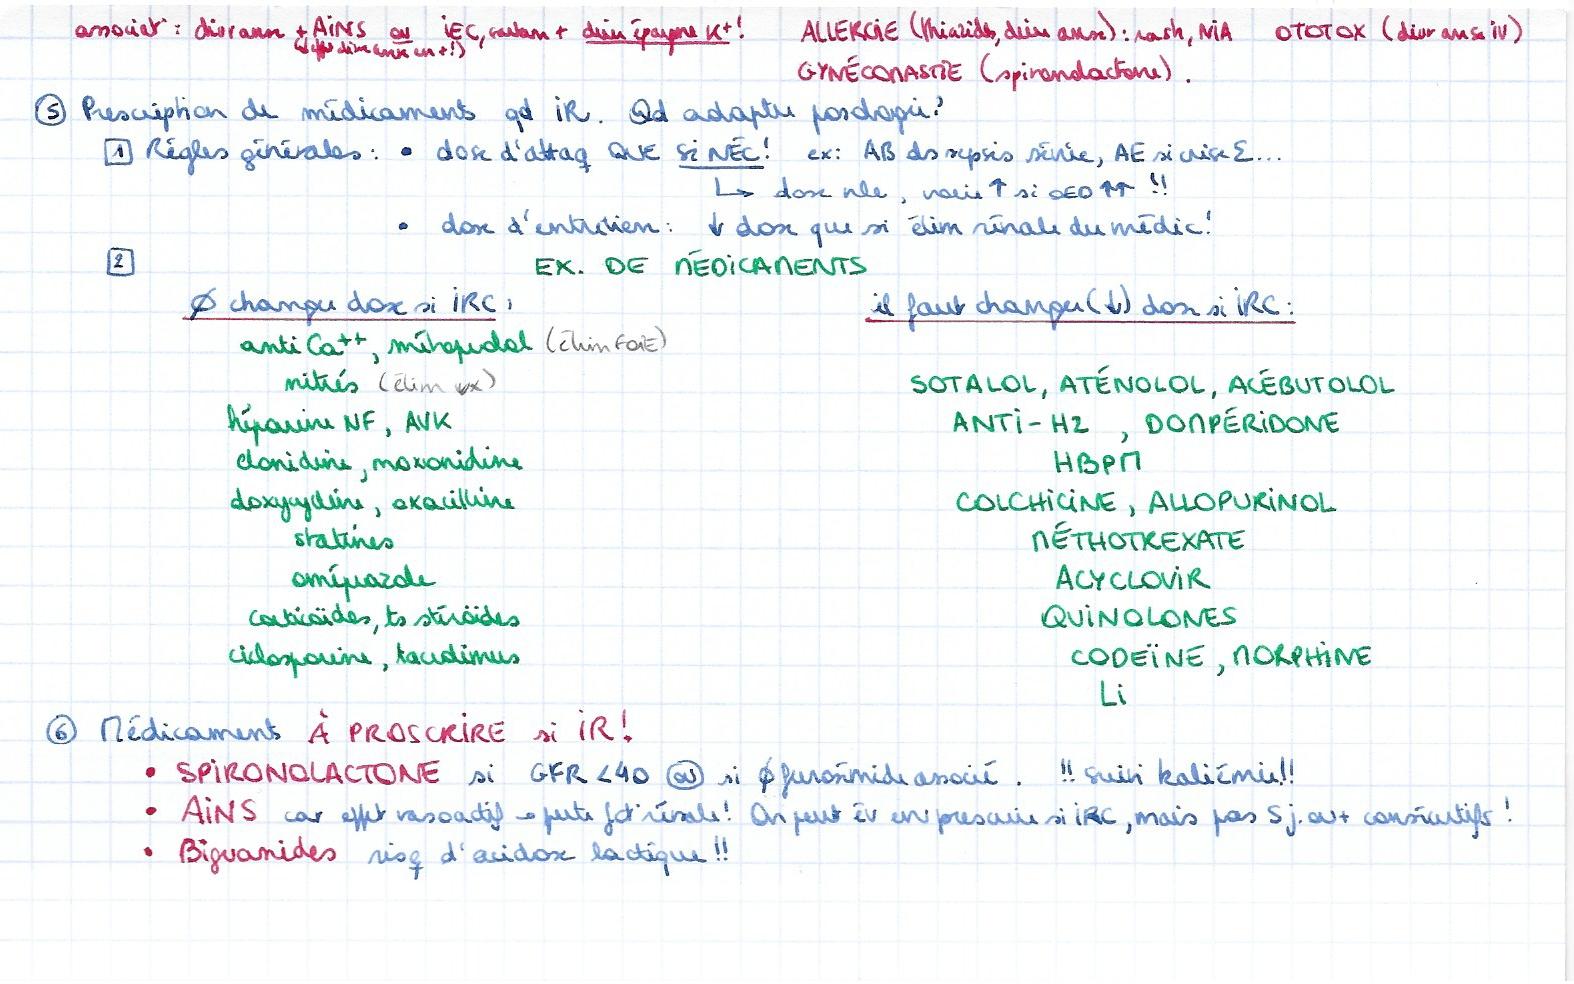 associat° : diur anse + AiNS ou iEC, sartan + diur épargne K+ !
(↓ effet diur anse en + !)
ALLERGIE (thiazides, diur anse) : rash, NiA OTOTOX (diur anse iV)
GYNÉCOMASTIE (spironolactone).
⑤ Prescription de médicaments qd iR. Qd adapter posologie?
1 Règles générales : • dose d'attaq QUE Si NÉC! ex: AB ds sepsis sévère, AE si crise Σ...
↳ dose nle, voire ↑ si OED ↑↑ !!
• dose d'entretien : ↓ dose que si élim rénale du médic!
2 EX. DE MÉDiCAMENTS
Ø changer dose si iRC :
anti Ca++, métoprolol (élim FOiE)
nitrés (élim vx)
héparine NF, AVK
clonidine, moxonidine
doxycycline, oxacilline
statines
oméprazole
corticoïdes, ts stéroïdes
ciclosporine, tacrolimus
il faut changer (↓) dose si iRC :
SOTALOL, ATÉNOLOL, ACÉBUTOLOL
ANTi-H2 , DOMPÉRiDONE
HBPM
COLCHiCiNE, ALLOPURiNOL
MÉTHOTREXATE
ACYCLOViR
QUiNOLONES
CODEÏNE, MORPHiNE
Li
⑥ Médicaments À PROSCRiRE si iR!
• SPiRONOLACTONE si GFR <40 ou si Ø furosémide associé. !! suivi kaliémie!!
• AiNS car effet vasoactif → perte fct° rénale! On peut év en prescrire si iRC, mais pas 5 j. ou + consécutifs!
• Biguanides risq d'acidose lactique !!